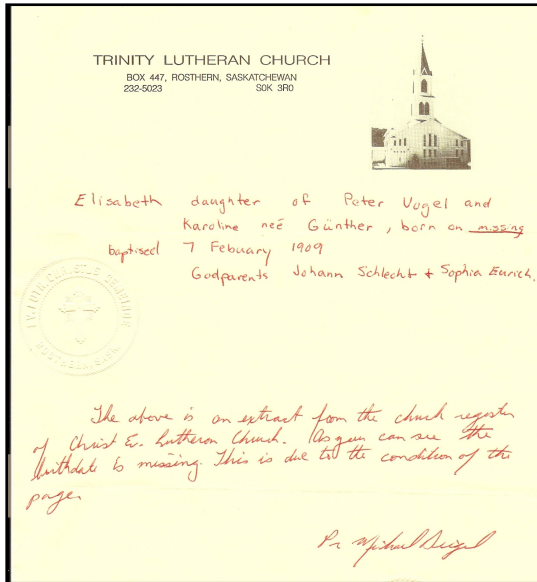 TRINITY LUTHERAN CHURCH
BOX 447, ROSTHERN, SASKATCHEWAN
232-5023 S0K 3R0
Elisabeth daughter of Peter Vogel and
Karoline neé Günther, born on missing
baptised 7 Febuary 1909
Godparents Johann Schlecht + Sophia Eurich.
EV. LUTH. CHRISTUS GEMEINDE
ROSTHERN, SASK.
The above is an extract from the church register
of Christ Ev. Lutheran Church. As you can see the
birthdate is missing. This is due to the condition of the
page.
Pr Michael